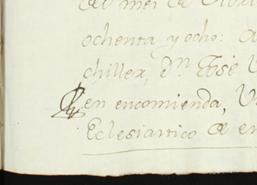 del mes de
ochenta y ocho: a
chiller, dⁿ José V
en encomienda, V
Eclesiastico de en